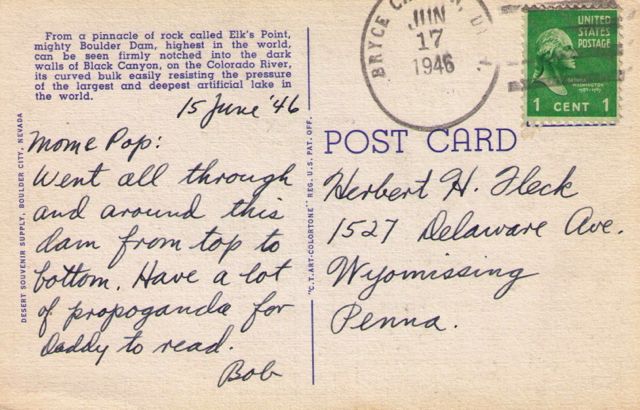 From a pinnacle of rock called Elk's Point,
mighty Boulder Dam, highest in the world,
can be seen firmly notched into the dark
walls of Black Canyon, on the Colorado River,
its curved bulk easily resisting the pressure
of the largest and deepest artificial lake in
the world.
15 June '46
Mom & Pop:
Went all through
and around this
dam from top to
bottom. Have a lot
of propoganda for
Daddy to read.
Bob
DESERT SOUVENIR SUPPLY, BOULDER CITY, NEVADA
"C.T. ART-COLORTONE" REG. U.S. PAT. OFF.
JUN
17
1946
UNITED
STATES
POSTAGE
GEORGE
WASHINGTON
1 CENT 1
POST CARD
Herbert H. Fleck
1527 Delaware Ave.
Wyomissing
Penna.